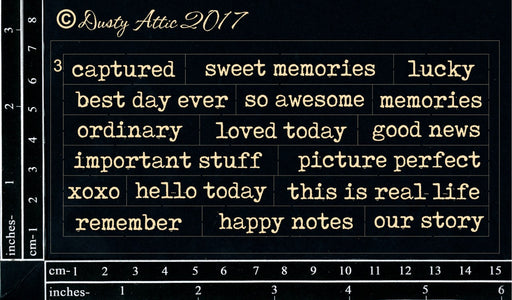 © Dusty Attic 2017
3 captured sweet memories lucky
best day ever so awesome memories
ordinary loved today good news
important stuff picture perfect
xoxo hello today this is real life
remember happy notes our story
cm-1 2 3 4 5 6 7 8 9 10 11 12 13 14 15
inches- 1 2 3 4 5 6
cm-1 2 3 4 5 6 7 8
inches- 1 2 3